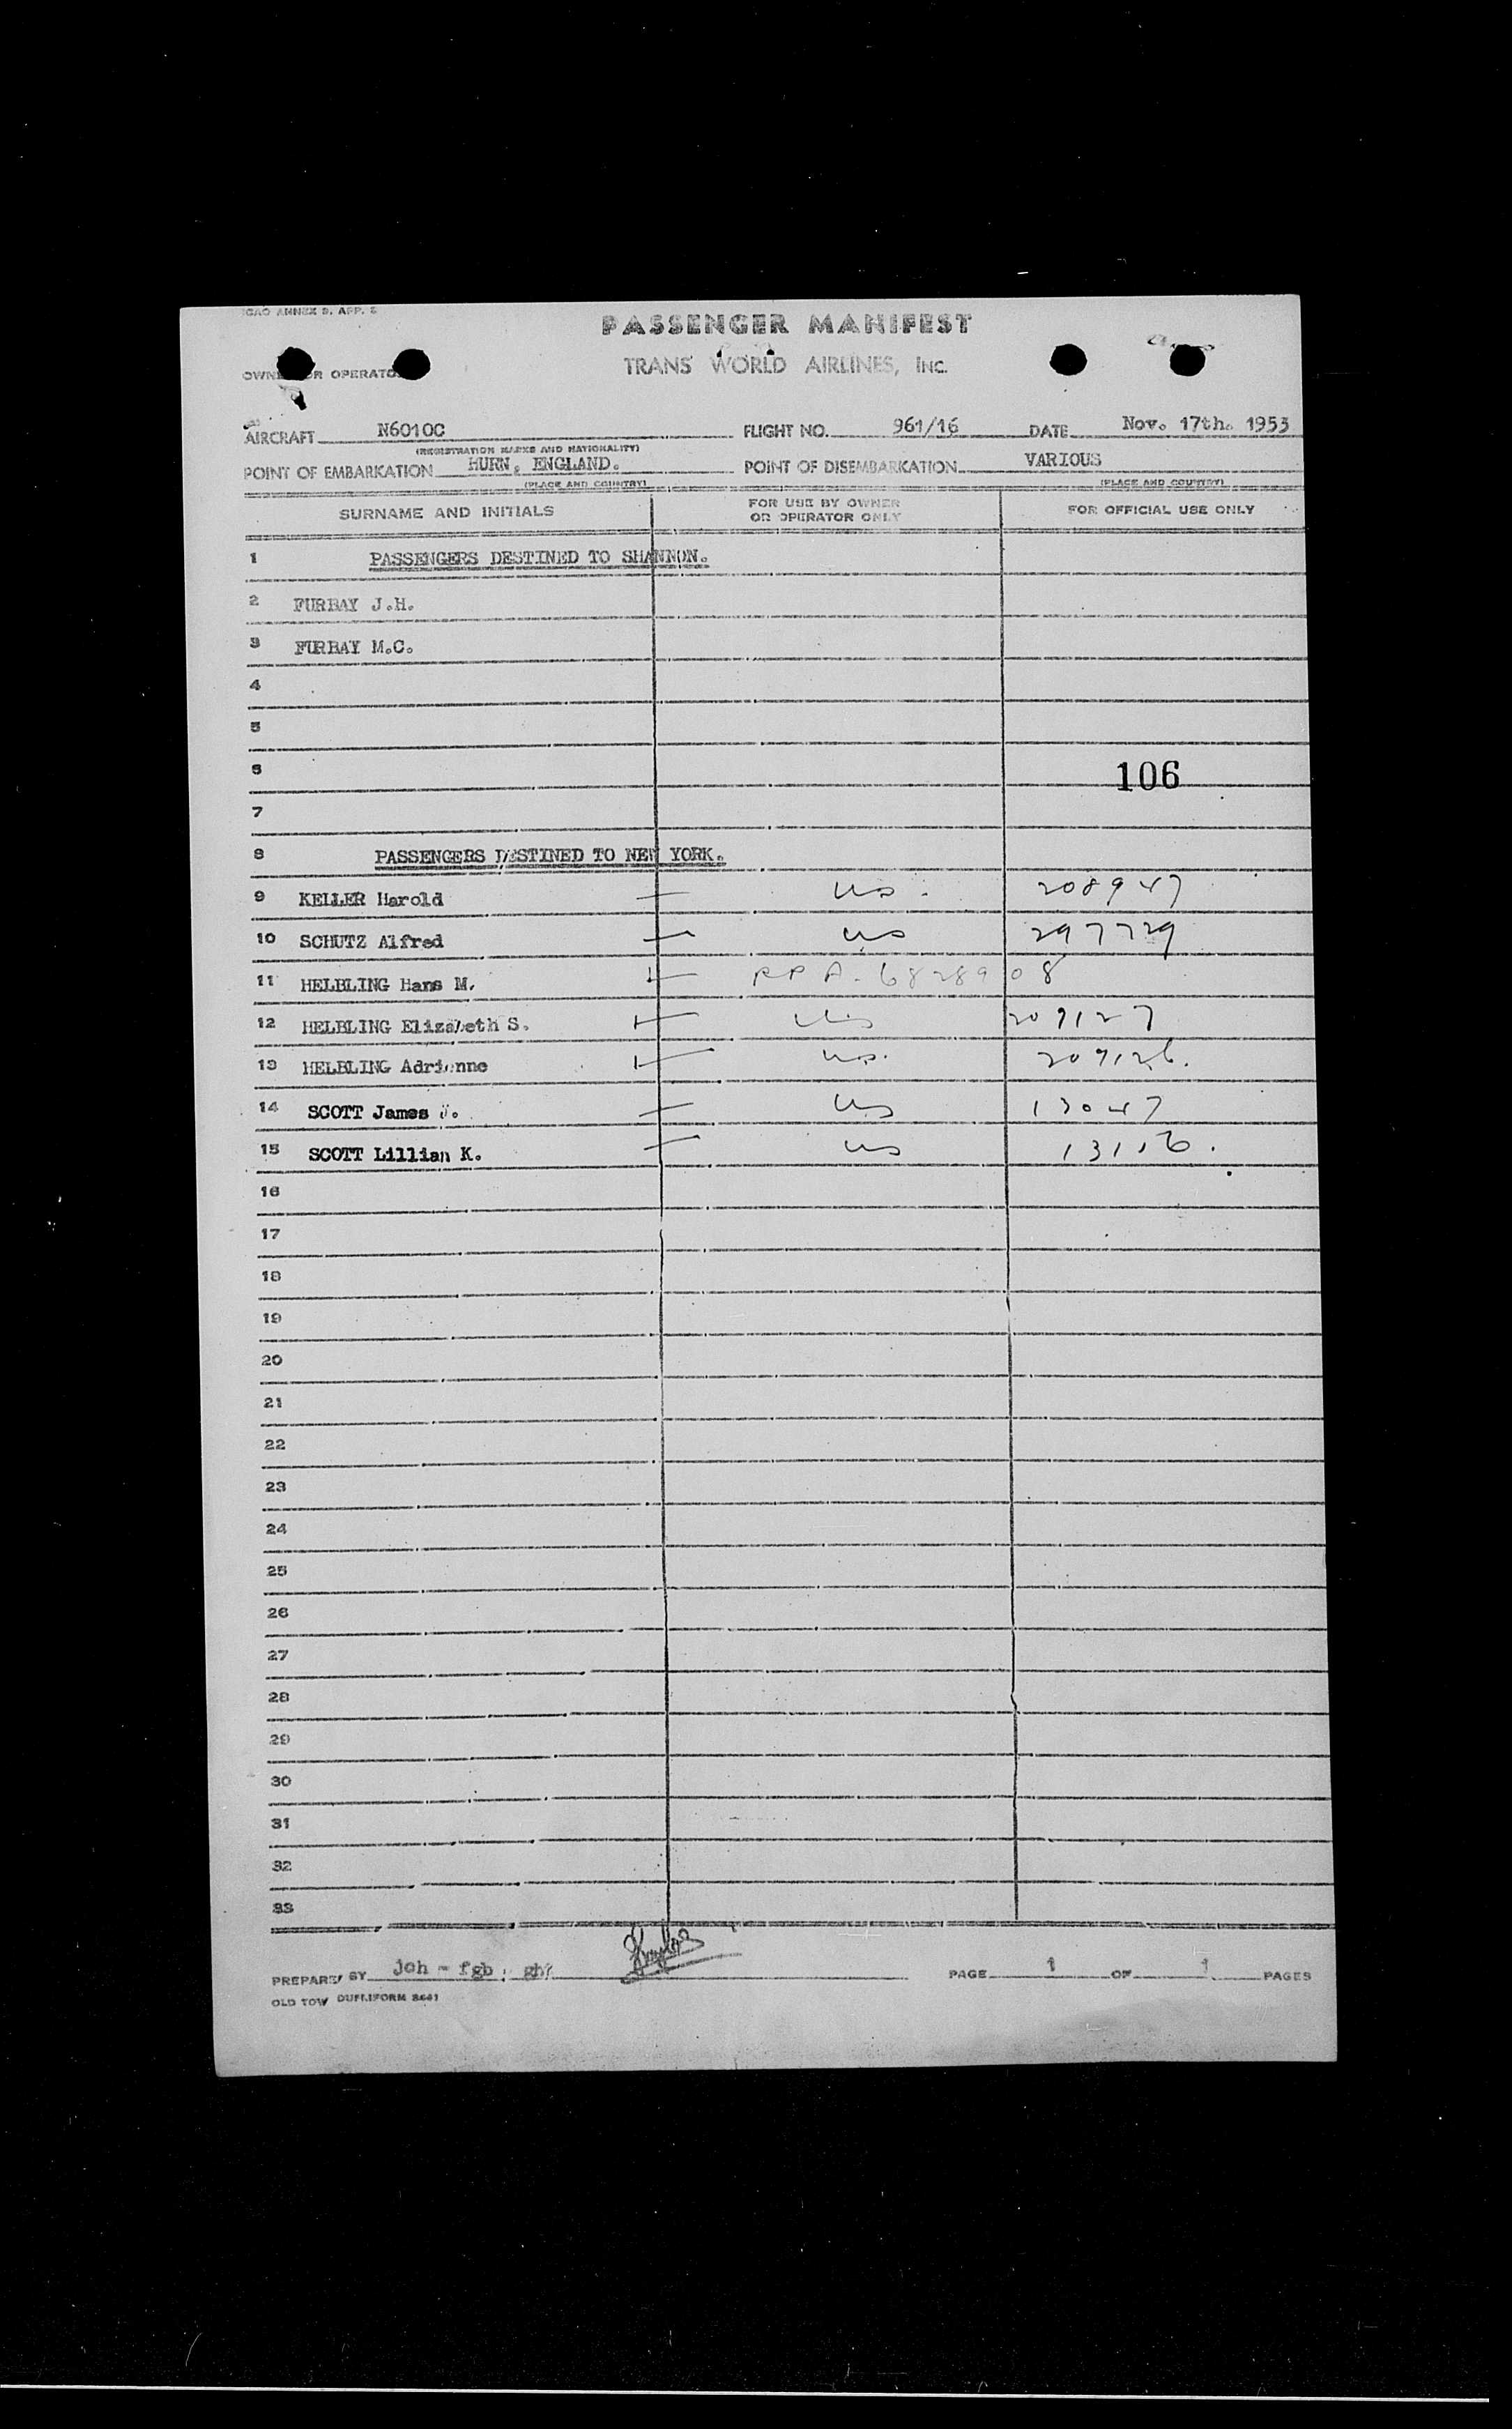 ICAO ANNEX 9. APP. 5
PASSENGER MANIFEST
OWNER OR OPERATOR TRANS WORLD AIRLINES, INC.
AIRCRAFT N6010C FLIGHT NO. 961/16 DATE Nov. 17th. 1953
(REGISTRATION MARKS AND NATIONALITY)
POINT OF EMBARKATION HURN, ENGLAND. POINT OF DISEMBARKATION VARIOUS
(PLACE AND COUNTRY) (PLACE AND COUNTRY)
SURNAME AND INITIALS FOR USE BY OWNER OR OPERATOR ONLY FOR OFFICIAL USE ONLY
1 PASSENGERS DESTINED TO SHANNON.
2 FURBAY J.H.
3 FURBAY M.C.
4
5
6 106
7
8 PASSENGERS DESTINED TO NEW YORK.
9 KELLER Harold US. 208947
10 SCHUTZ Alfred US 297729
11 HELBLING Hans M. RPA-6828908
12 HELBLING Elizabeth S. US 209127
13 HELBLING Adrienne US. 209126.
14 SCOTT James J. US 13047
15 SCOTT Lillian K. US 13116.
16
17
18
19
20
21
22
23
24
25
26
27
28
29
30
31
32
33
PREPARED BY joh - fgb PAGE 1 OF 1 PAGES
OLD TOW DUPLIFORM 8641